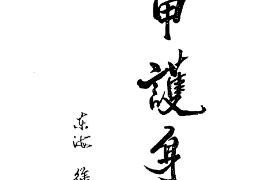 甲護身
东海 徐